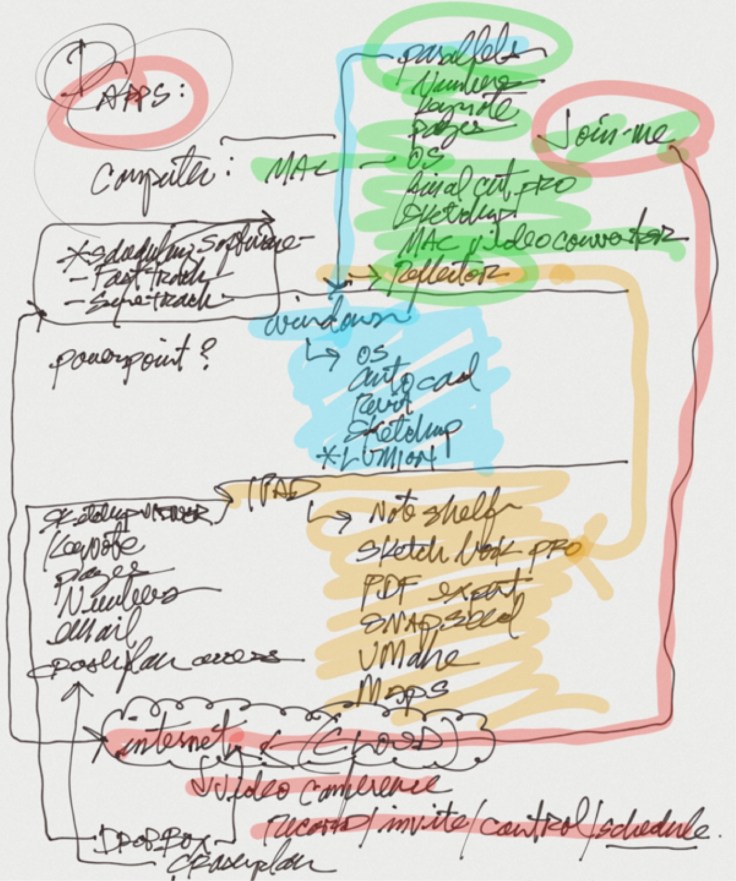 APPS:
parallels
Numbers
Keynote
pages
Join-me
Computer: MAC - OS
final cut pro
Sketchup
MAC video converter
Reflector
*scheduling software
- Fast track
windows
powerpoint?
OS
autocad
Revit
Sketchup
*LUMION
IPAD
Sketchup viewer
Keynote
pages
Numbers
email
crashplan access
Note shelf
Sketch book pro
PDF expert
SNAPSeed
UMake
Maps
internet (CLOUD)
video conference
record/invite/control/schedule.
DROPBOX
crashplan